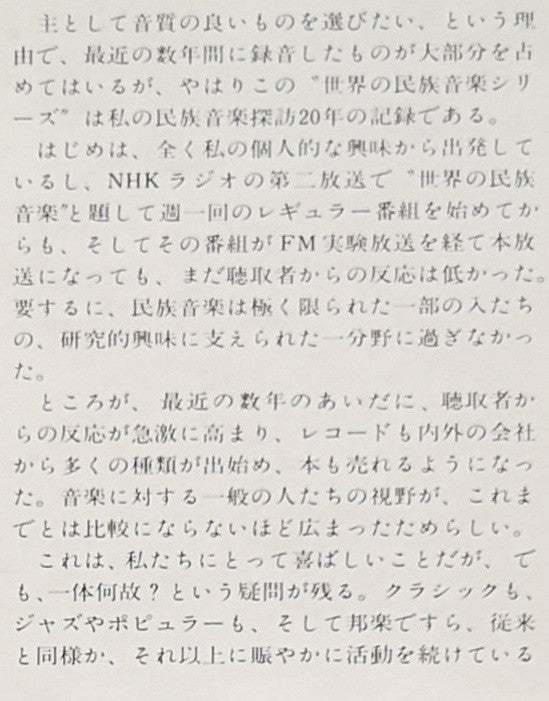 主として音質の良いものを選びたい、という理
由で、最近の数年間に録音したものが大部分を占
めてはいるが、やはりこの〝世界の民族音楽シリ
ーズ〞は私の民族音楽探訪20年の記録である。
　はじめは、全く私の個人的な興味から出発して
いるし、NHKラジオの第二放送で〝世界の民族
音楽〞と題して週一回のレギュラー番組を始めてか
らも、そしてその番組がFM実験放送を経て本放
送になっても、まだ聴取者からの反応は低かった。
要するに、民族音楽は極く限られた一部の人たち
の、研究的興味に支えられた一分野に過ぎなかっ
た。
　ところが、最近の数年のあいだに、聴取者か
らの反応が急激に高まり、レコードも内外の会社
から多くの種類が出始め、本も売れるようになっ
た。音楽に対する一般の人たちの視野が、これま
でとは比較にならないほど広まったためらしい。
　これは、私たちにとって喜ばしいことだが、で
も、一体何故？という疑問が残る。クラシックも、
ジャズやポピュラーも、そして邦楽ですら、従来
と同様か、それ以上に賑やかに活動を続けている